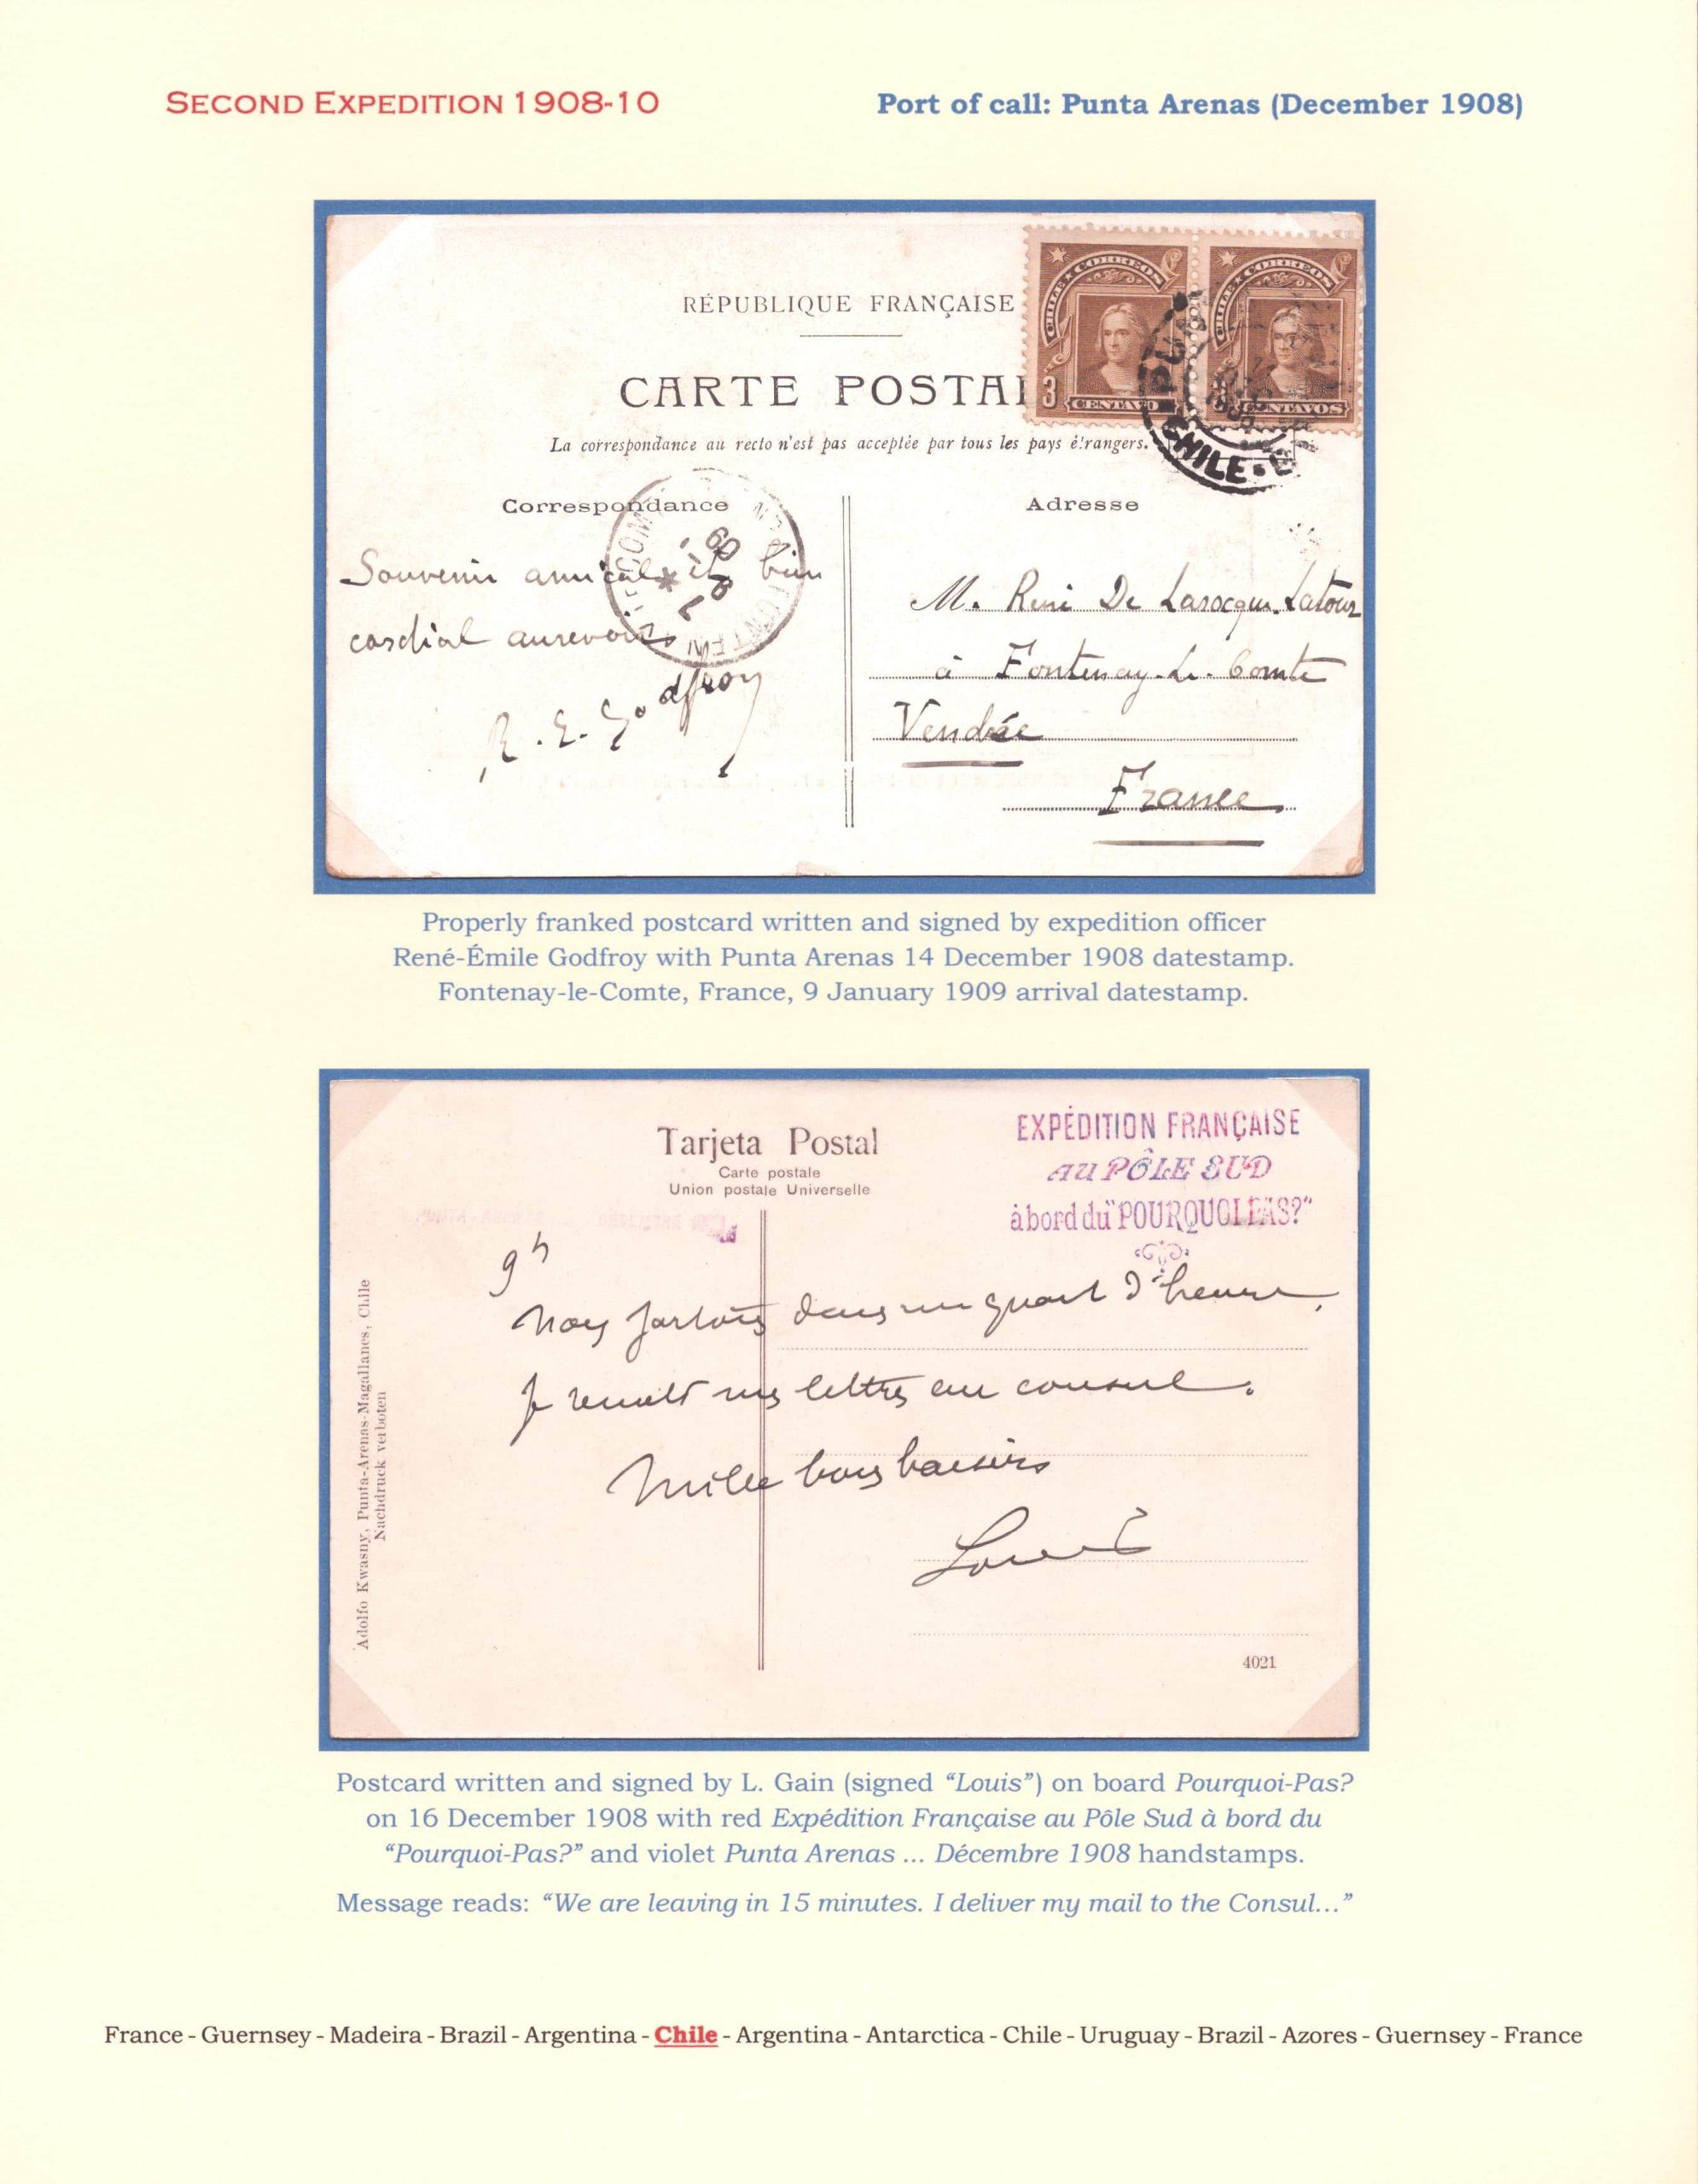 SECOND EXPEDITION 1908-10
Port of call: Punta Arenas (December 1908)
RÉPUBLIQUE FRANÇAISE
CARTE POSTAL
La correspondance au recto n'est pas acceptée par tous les pays étrangers.
CHILE CORREOS
CHILE CORREOS
3 CENTAVO
CENTAVOS
PUN
CHILE
Correspondance
Adresse
Souvenir amical et bien
cordial aurevoir
R. E. Godfroy
09
M. René De Larocque Latour
à Fontenay-Le-Comte
Vendée
France
Properly franked postcard written and signed by expedition officer
René-Émile Godfroy with Punta Arenas 14 December 1908 datestamp.
Fontenay-le-Comte, France, 9 January 1909 arrival datestamp.
Tarjeta Postal
Carte postale
Union postale Universelle
EXPÉDITION FRANÇAISE
AU PÔLE SUD
à bord du "POURQUOI PAS?"
9h
Nous partons dans un quart d'heure.
Je remets mes lettres au consul.
Mille bons baisers
Louis
Adolfo Kwasny, Punta-Arenas-Magallanes, Chile
Nachdruck verboten
4021
Postcard written and signed by L. Gain (signed “Louis”) on board Pourquoi-Pas?
on 16 December 1908 with red Expédition Française au Pôle Sud à bord du
“Pourquoi-Pas?” and violet Punta Arenas ... Décembre 1908 handstamps.
Message reads: “We are leaving in 15 minutes. I deliver my mail to the Consul...”
France - Guernsey - Madeira - Brazil - Argentina - Chile - Argentina - Antarctica - Chile - Uruguay - Brazil - Azores - Guernsey - France